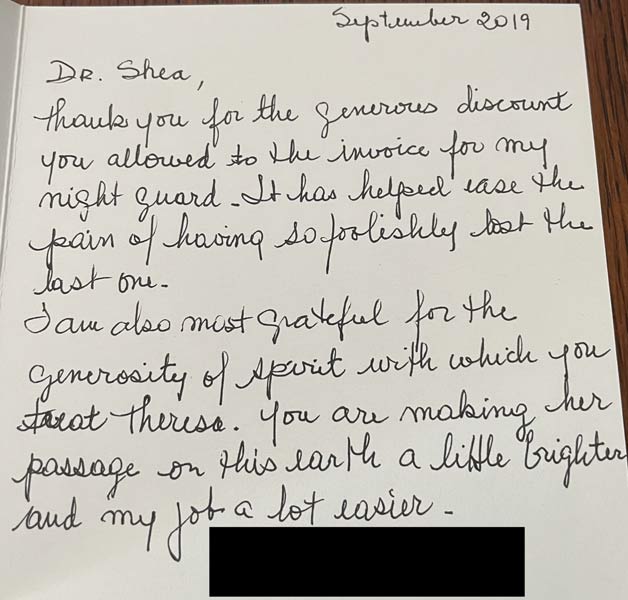 September 2019
Dr. Shea,
Thank you for the generous discount
you allowed to the invoice for my
night guard. It has helped ease the
pain of having so foolishly lost the
last one.
I am also most grateful for the
generosity of spirit with which you
treat Theresa. You are making her
passage on this earth a little brighter
and my job a lot easier.